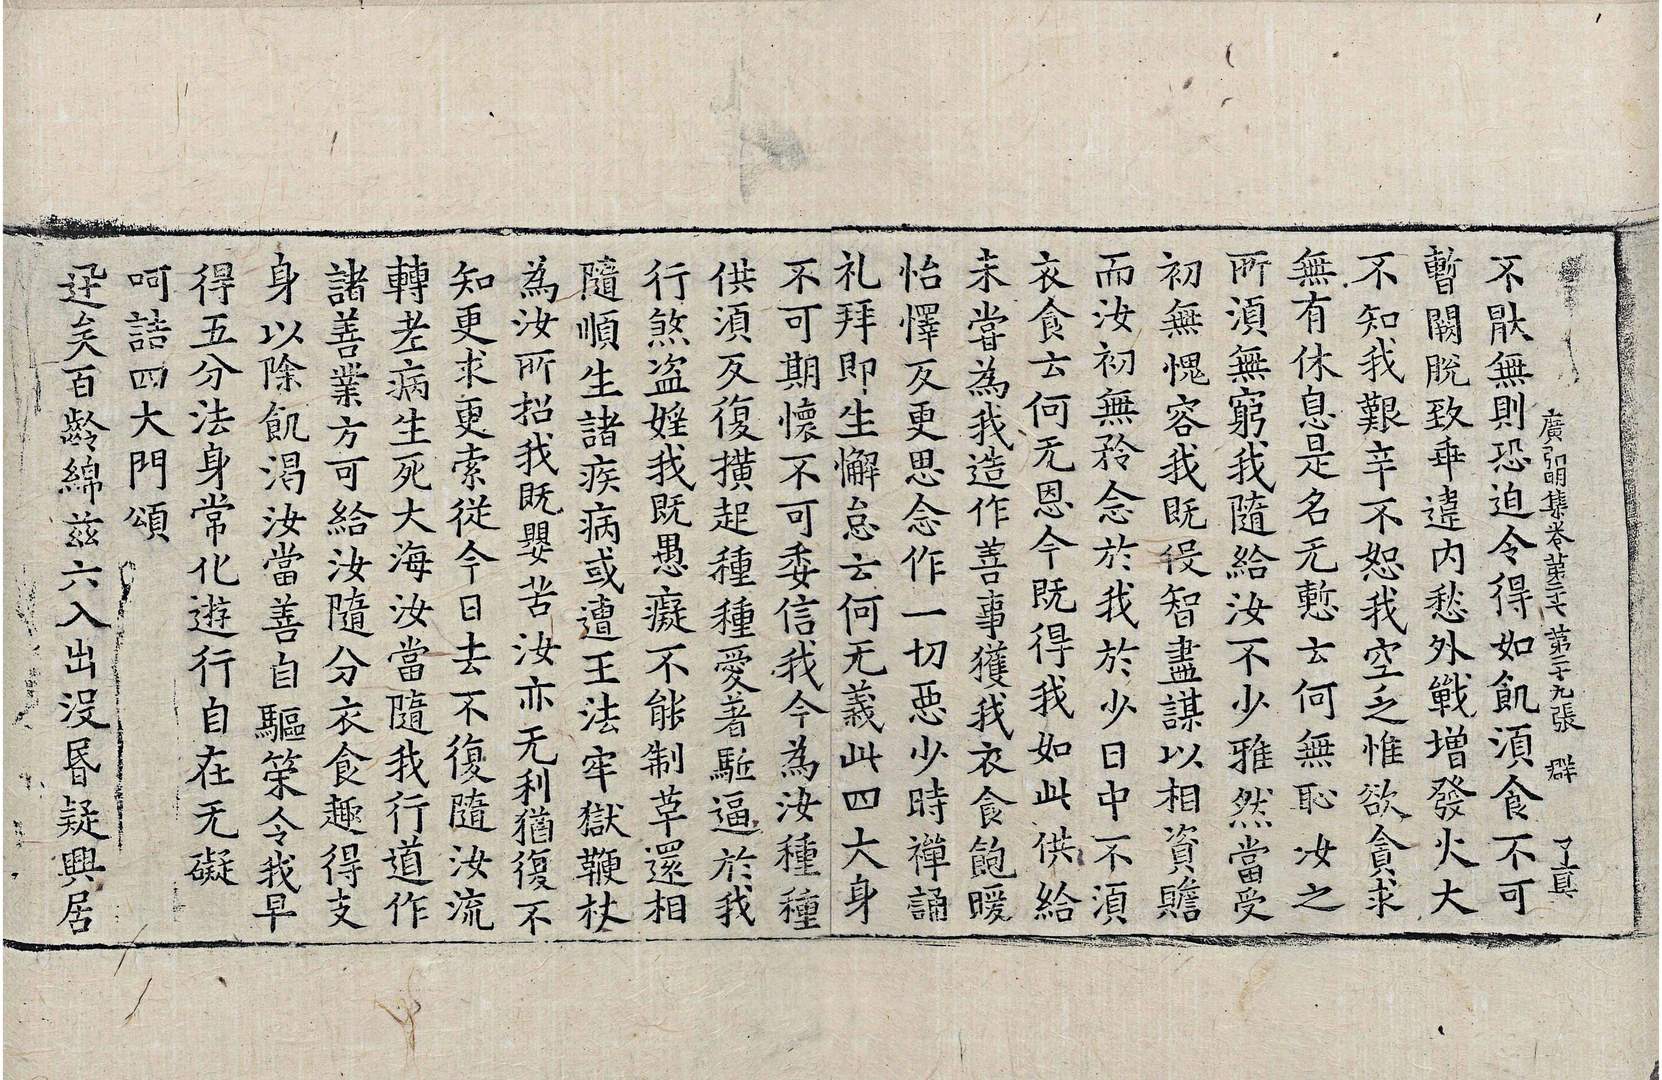 廣弘明集卷第二十七　第二十九張　群
不猒無則恐迫令得如飢湏食不可
暫闕脫致乖違内愁外戰増發火大
不知我艱辛不恕我空乏惟欲貪求
無有休息是名无慙云何無恥汝之
所湏無窮我隨給汝不少雅然當受
初無愧容我既伇智盡謀以相資贍
而汝初無矜念於我於少日中不湏
衣食云何无恩今既得我如此供給
未甞為我造作善事獲我衣食飽暖
怡懌反更思念作一切惡少時禪誦
礼拜即生懈怠云何无義此四大身
不可期懷不可委信我今為汝種種
供湏反復撗起種種愛著駈逼於我
行煞盗婬我既愚癡不能制草還相
隨順生諸疾病或遭王法牢獄鞭杖
為汝所招我既嬰苦汝亦无利猶復不
知更求更索從今日去不復隨汝流
轉老病生死大海汝當隨我行道作
諸善業方可給汝隨分衣食趣得支
身以除飢渴汝當善自驅策令我早
得五分法身常化遊行自在无礙
呵詰四大門頌
迅矣百齡綿兹六入出沒昏疑興居